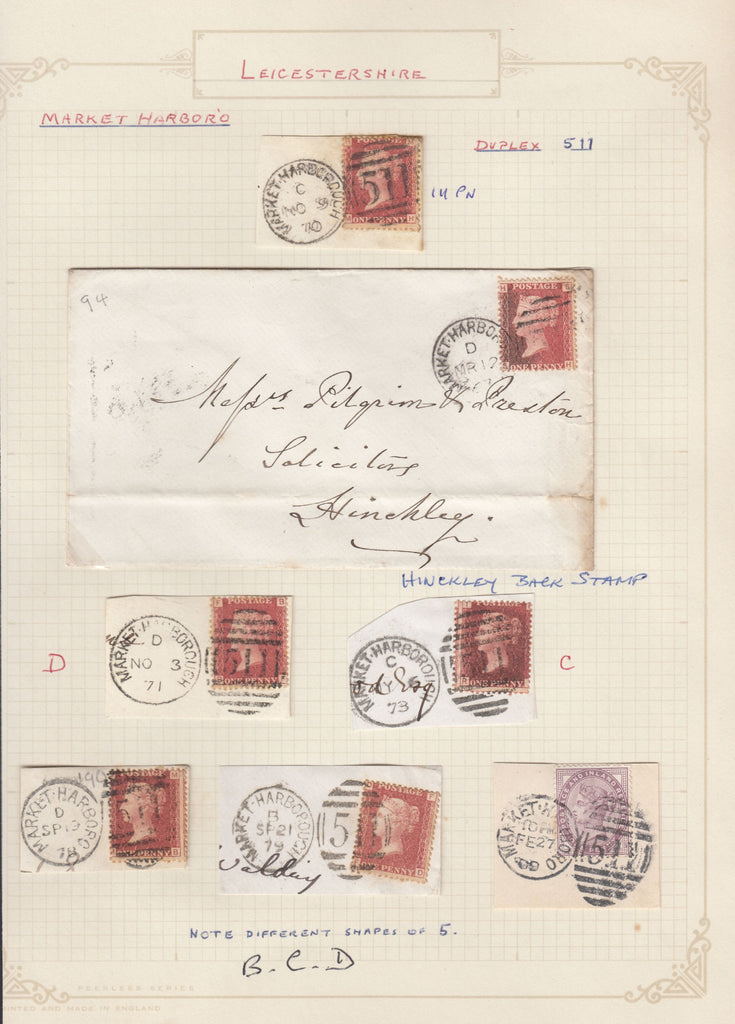 LEICESTERSHIRE
MARKET HARBORO
DUPLEX 511
POSTAGE
MARKET-HARBOROUGH
C
NO 9
70
511
ONE PENNY
14 PN
94
POSTAGE
MARKET-HARBORO
D
MR 17
ONE PENNY
Messrs Pilgrim & Preston
Solicitors
Hinckley.
HINCKLEY BACK STAMP
D
MARKET-HARBOROUGH
D
NO 3
71
POSTAGE
511
ONE PENNY
MARKET-HARBOROUGH
C
73
Esq
ONE PENNY
C
MARKET-HARBORO
D
SP 19
78
POSTAGE
511
ONE PENNY
MARKET-HARBOROUGH
B
SP 21
79
511
ONE PENNY
FE 27
511
NOTE DIFFERENT SHAPES OF 5.
B. C. D
PEERLESS SERIES
INTED AND MADE IN ENGLAND